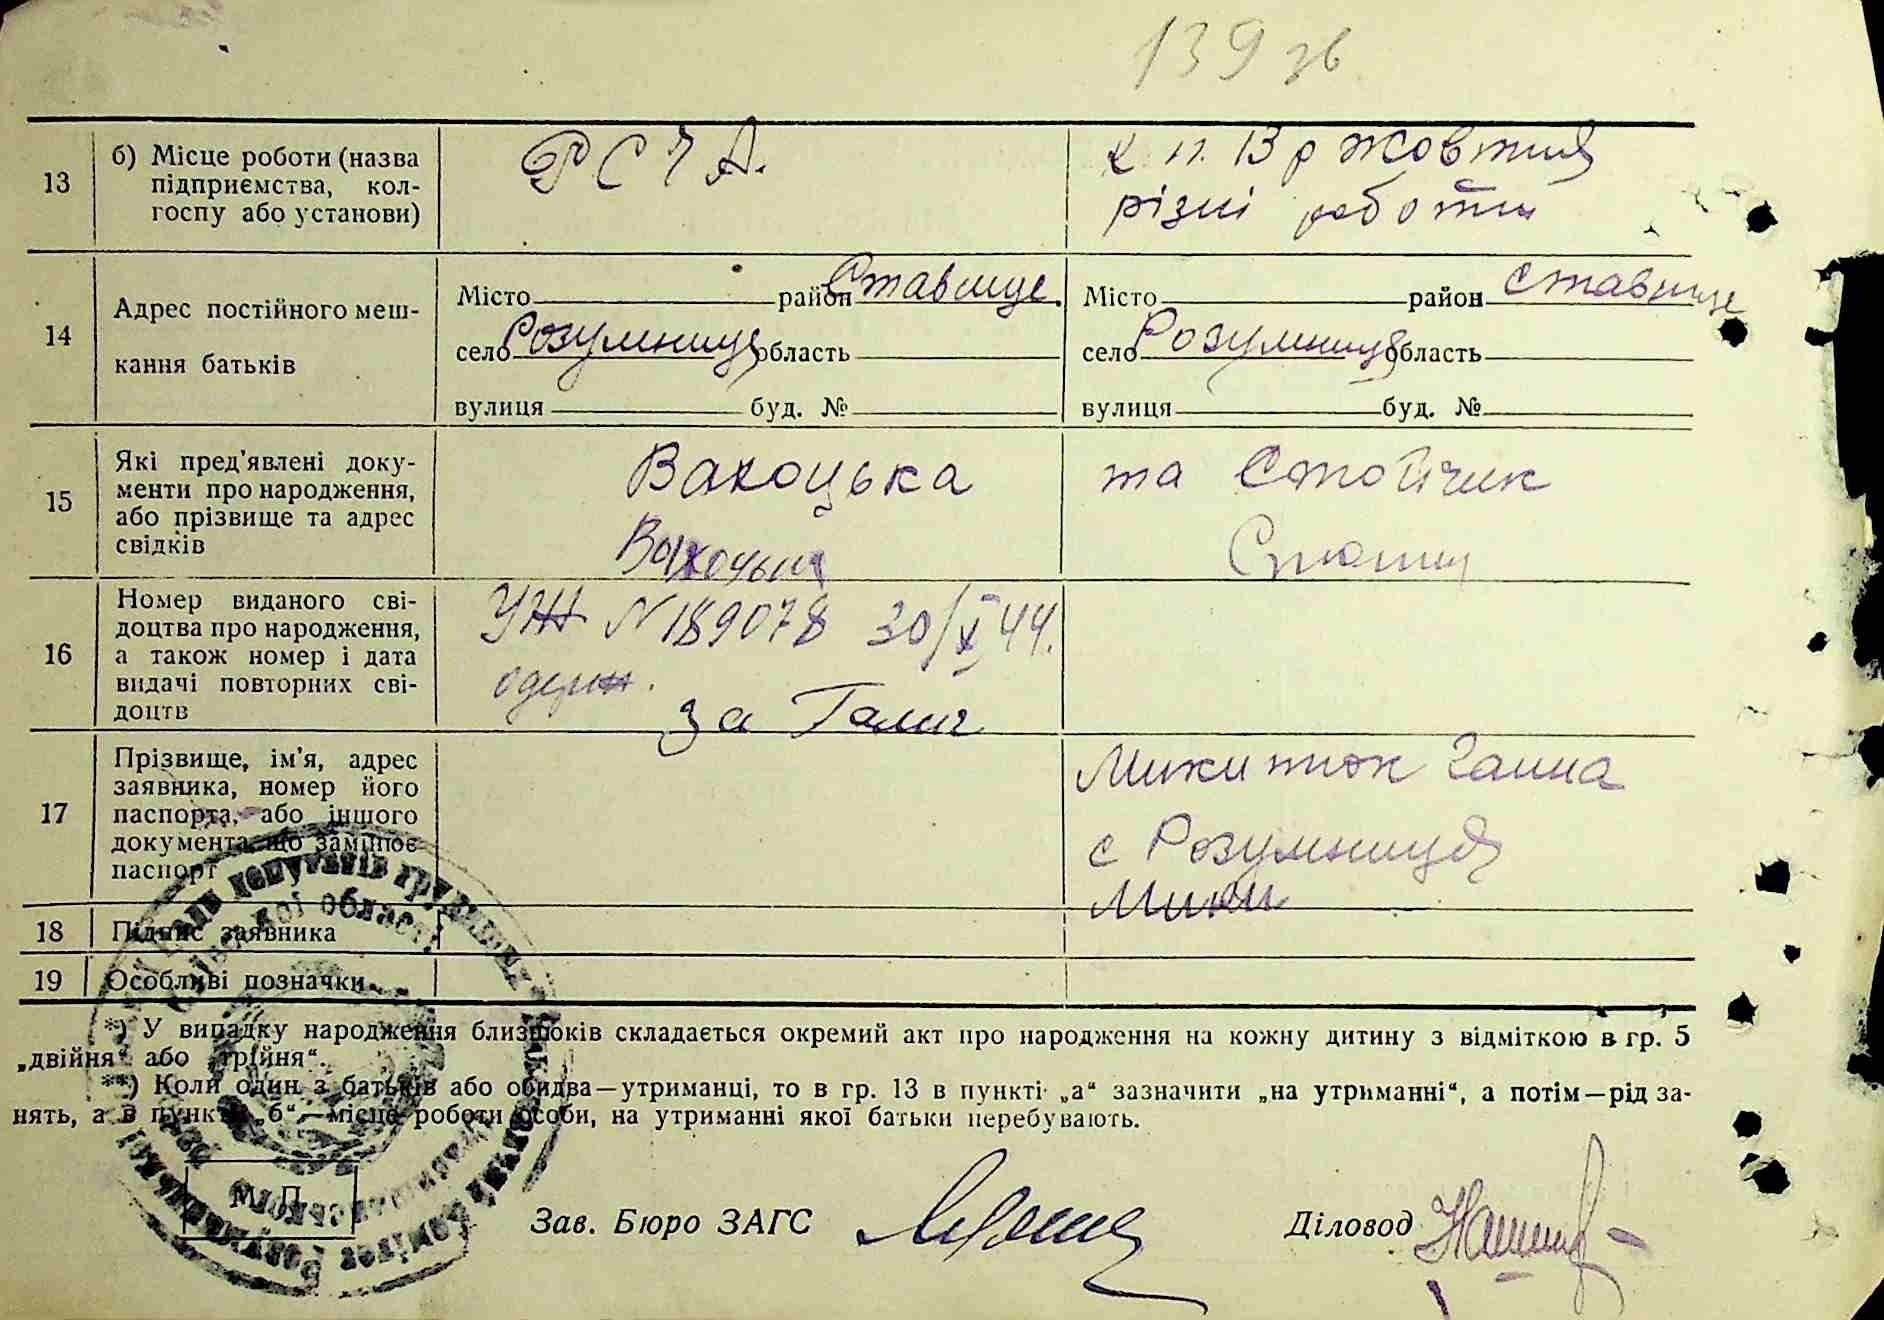 139 зв
13 б) Місце роботи (назва підприємства, колгоспу або установи) РСЧА. к п. 13 р Жовтня
різні роботи
14 Адрес постійного мешкання батьків
Місто район Ставище. Місто район Ставище
село Розумниця область село Розумниця область
вулиця буд. № вулиця буд. №
15 Які пред'явлені документи про народження, або прізвище та адрес свідків Вахоцька та Стойчик
16 Номер виданого свідоцтва про народження, а також номер і дата видачі повторних свідоцтв УЖ N 189078 30/X 44.
одерж.
за Галич
17 Прізвище, ім'я, адрес заявника, номер його паспорта, або іншого документа, що замінює паспорт Микитюк Ганна
с Розумниця
18 Підпис заявника Мики
19 Особливі позначки
*) У випадку народження близнюків складається окремий акт про народження на кожну дитину з відміткою в гр. 5
„двійня“ або „трійня“.
**) Коли один з батьків або обидва—утриманці, то в гр. 13 в пункті „а“ зазначити „на утриманні“, а потім—рід за-
нять, а в пункті „б“—місце роботи особи, на утриманні якої батьки перебувають.
М. П.
Зав. Бюро ЗАГС Діловод